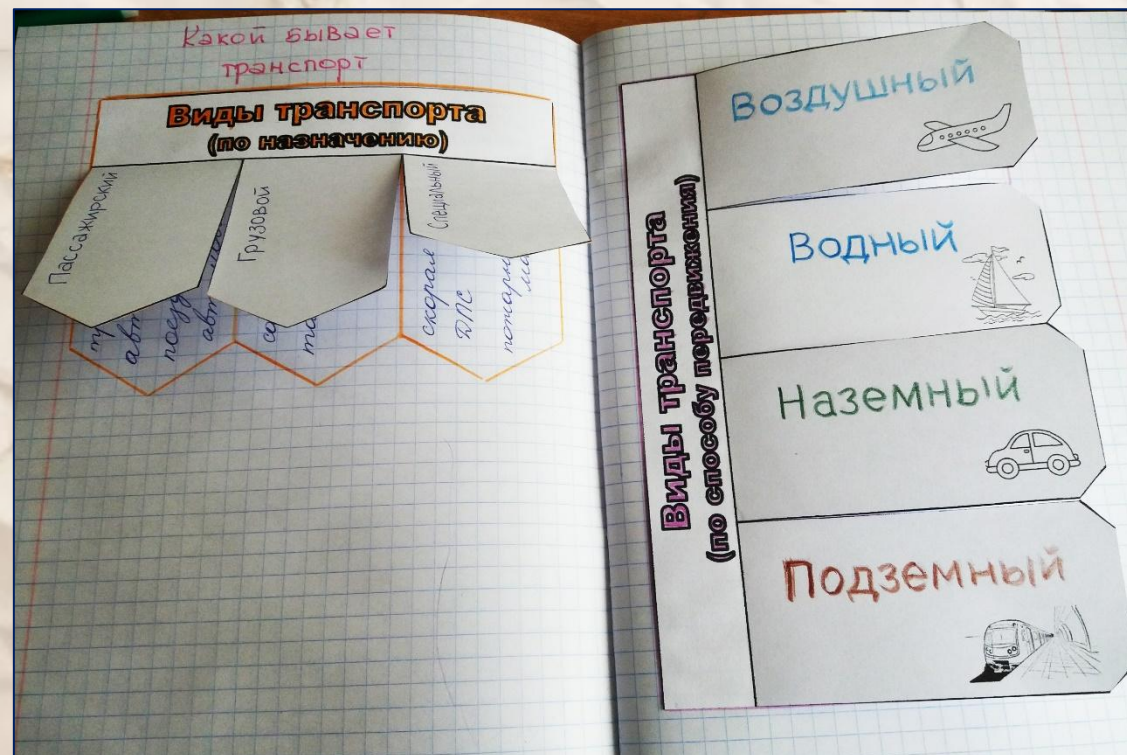 Какой бывает
транспорт
Виды транспорта
(по назначению)
Пассажирский
Грузовой
Специальный
скорая
ДПС
Виды транспорта
(по способу передвижения)
Воздушный
Водный
Наземный
Подземный